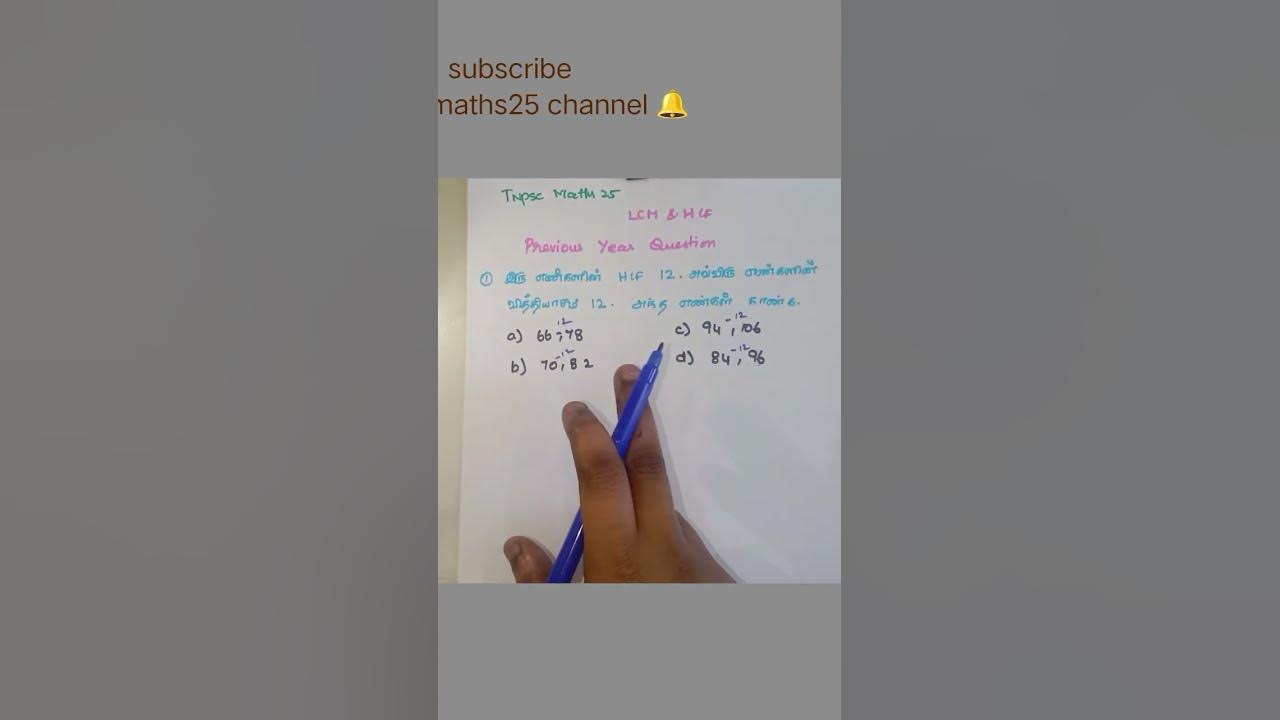 subscribe
maths25 channel 🔔
Tnpsc Math 25
LCM & HCF
Previous Year Question
① இரு எண்களின் HCF 12. அவ்விரு எண்களின்
வித்தியாசம் 12. அந்த எண்கள் காண்க.
a) 66 -12, 78 c) 94 -12, 106
b) 70 -12, 82 d) 84 -12, 96